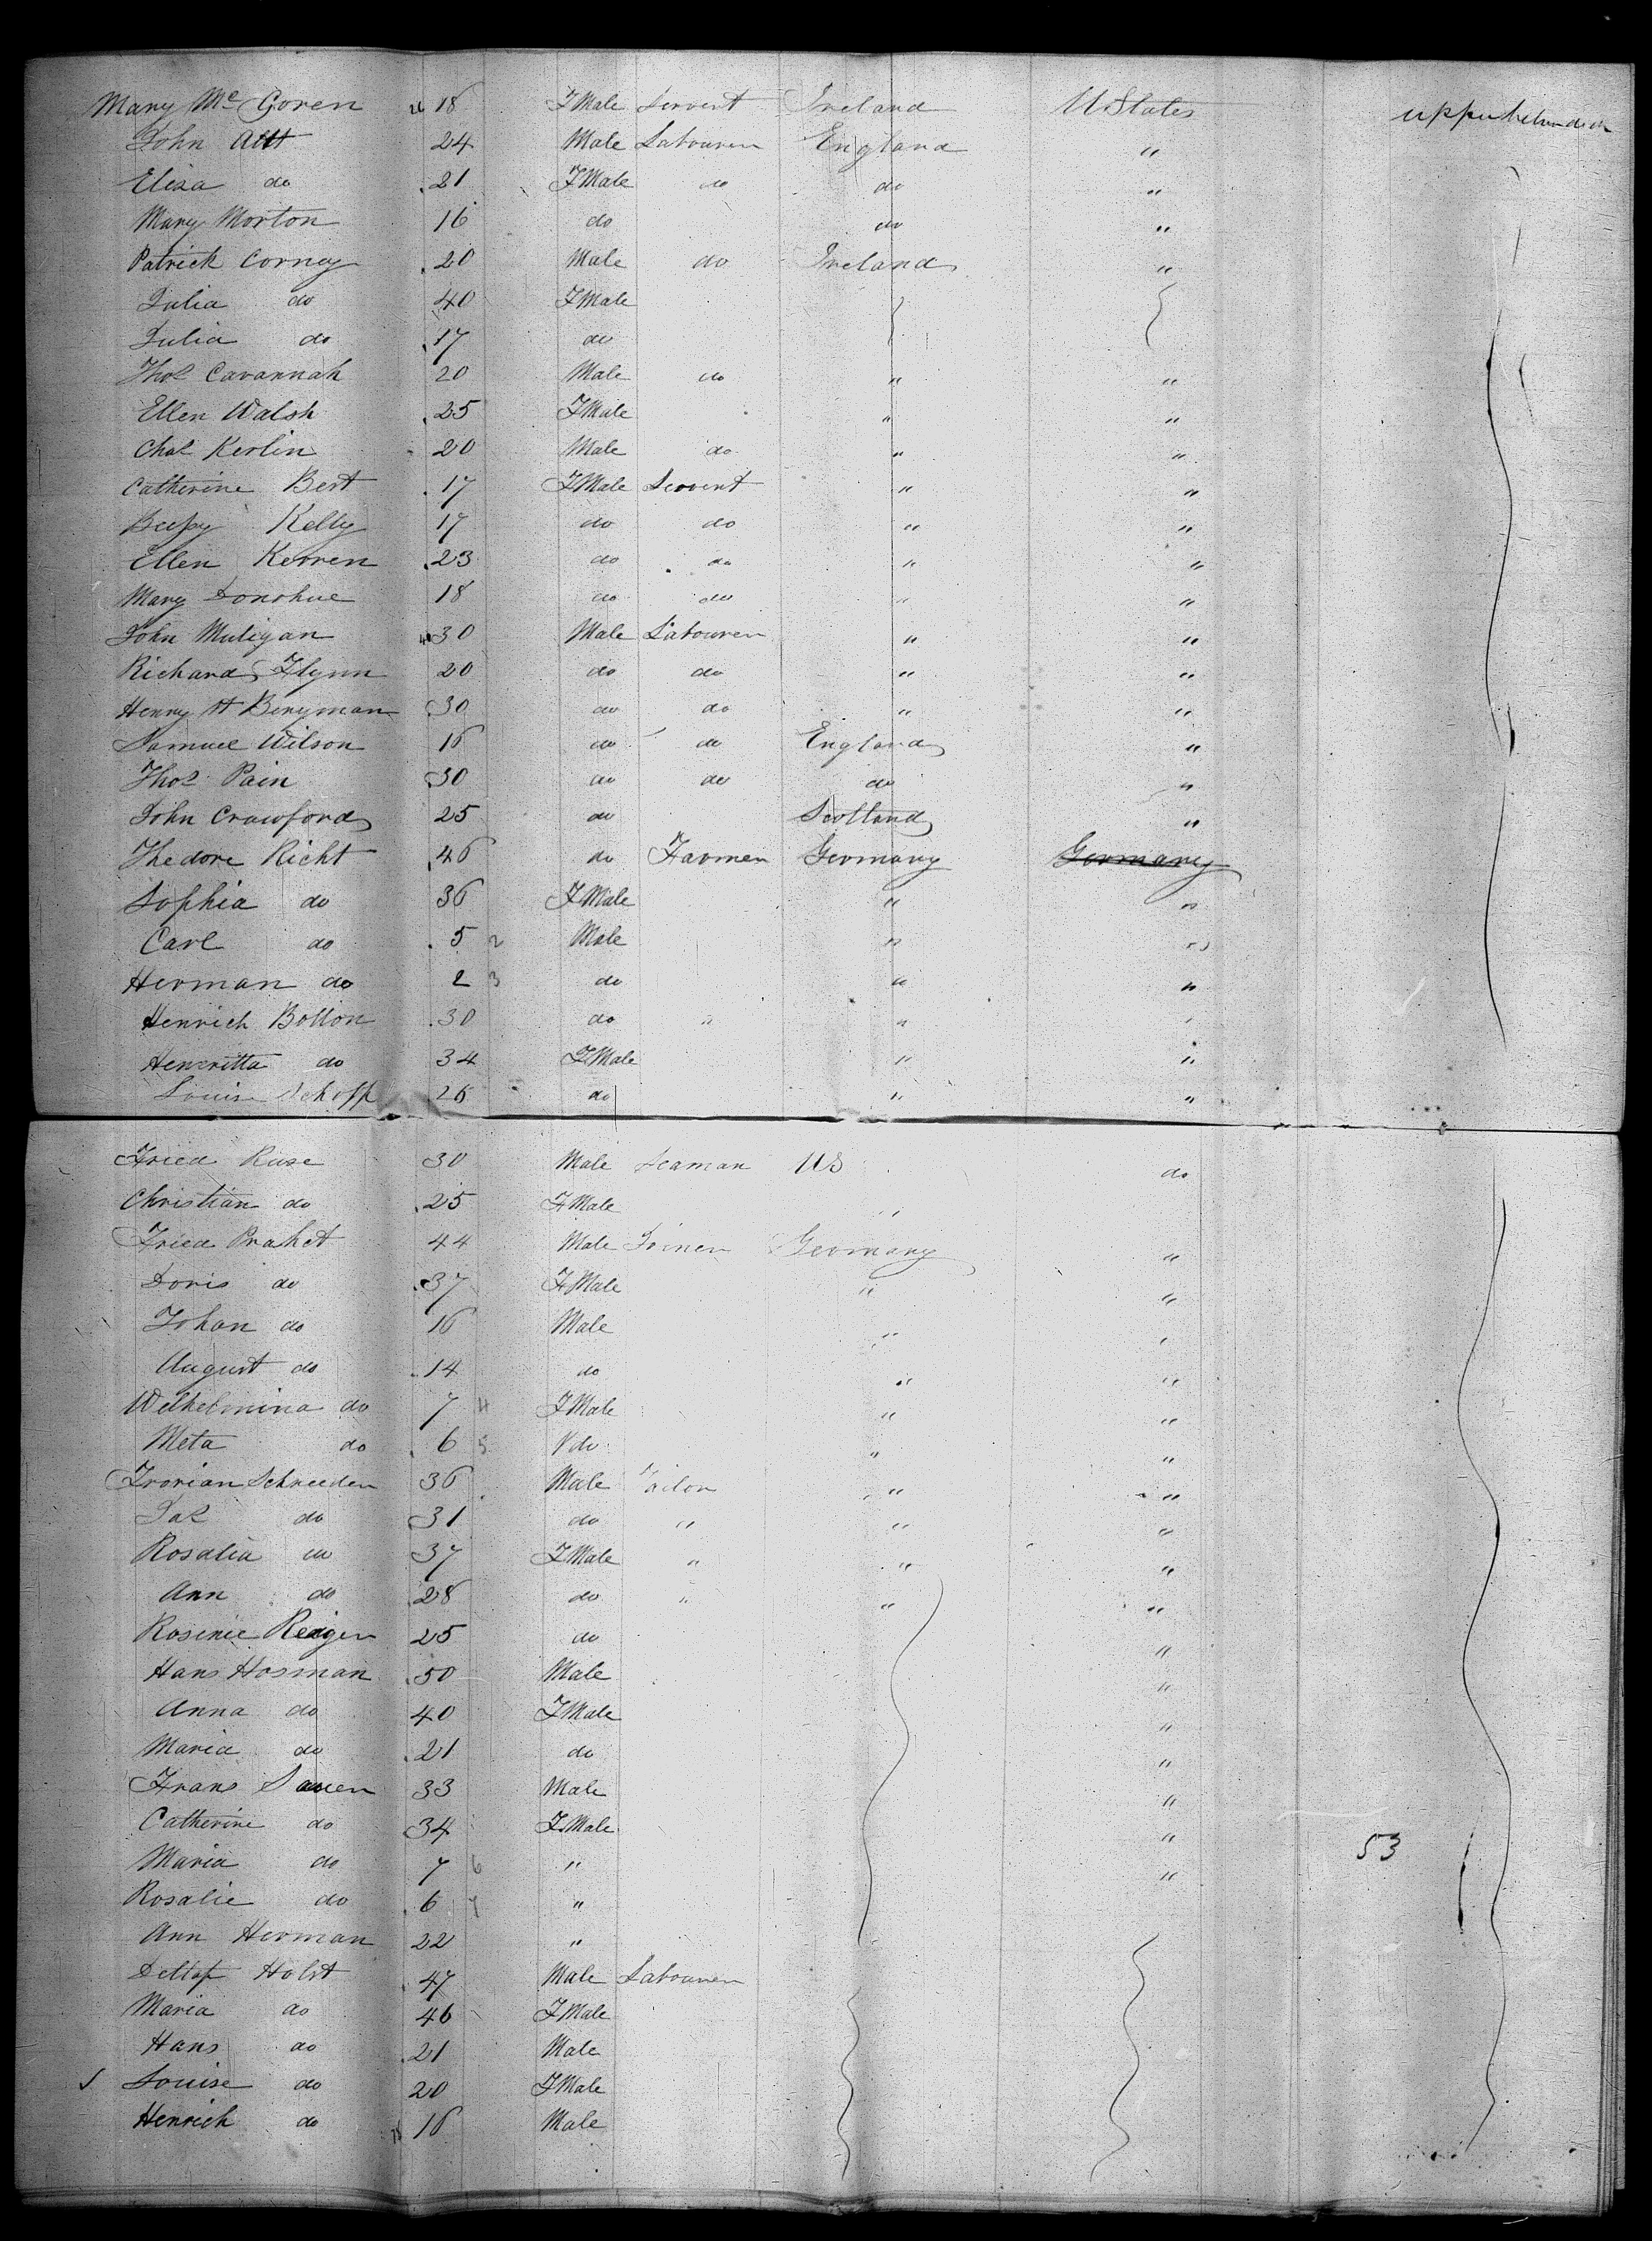 Mary Mc Goren 18 FMale Servent Ireland U States
John Allt 24 Male Labourer England "
Elisa do 21 FMale do do "
Mary Morton 16 do do "
Patrick Corney 20 Male do Ireland "
Julia do 40 FMale
Julia do 17 do
Thos Cavannah 20 Male do " "
Ellen Walsh 25 FMale " "
Chas Kerlin 20 Male do " "
Catherine Bert 17 FMale Servent " "
Bessy Kelly 17 do do " "
Ellen Kerren 23 do do " "
Mary Donohue 18 do do " "
John Muligan 30 Male Labourer " "
Richard Flynn 20 do do " "
Henry H Beryman 30 do do " "
Samuel Wilson 16 do do England "
Thos Pain 30 do do do "
John Crawford 25 do Scotland "
Thedore Richt 46 do Farmer Germany Germany
Sophia do 36 FMale " "
Carl do 5 2 Male " "
Herman do 2 3 do " "
Henrich Bolton 30 do " " "
Henrritta do 34 FMale " "
Louis Schopp 26 do " "
Fried Ruse 30 Male Seaman US do
Christian do 25 FMale "
Fried Prahet 44 Male Joiner Germany "
Doris do 37 FMale " "
Johan do 16 Male " "
August do 14 do " "
Wilhelmina do 7 4 FMale " "
Meta do 6 5 do " "
Frorian Schreeder 36 Male Tailor " "
Jas do 31 do " " "
Rosalia do 37 FMale " " "
Ann do 28 do " " "
Rosinie Reiger 25 do "
Hans Hosman 50 Male "
Anna do 40 FMale "
Maria do 21 do "
Frans Sauer 33 Male "
Catherine do 34 FMale "
Maria do 7 6 " " 53
Rosalie do 6 7 "
Ann Herman 22 "
Detlof Holst 47 Male Labourer
Maria do 46 FMale
Hans do 21 Male
Louise do 20 FMale
Henrich do 16 Male